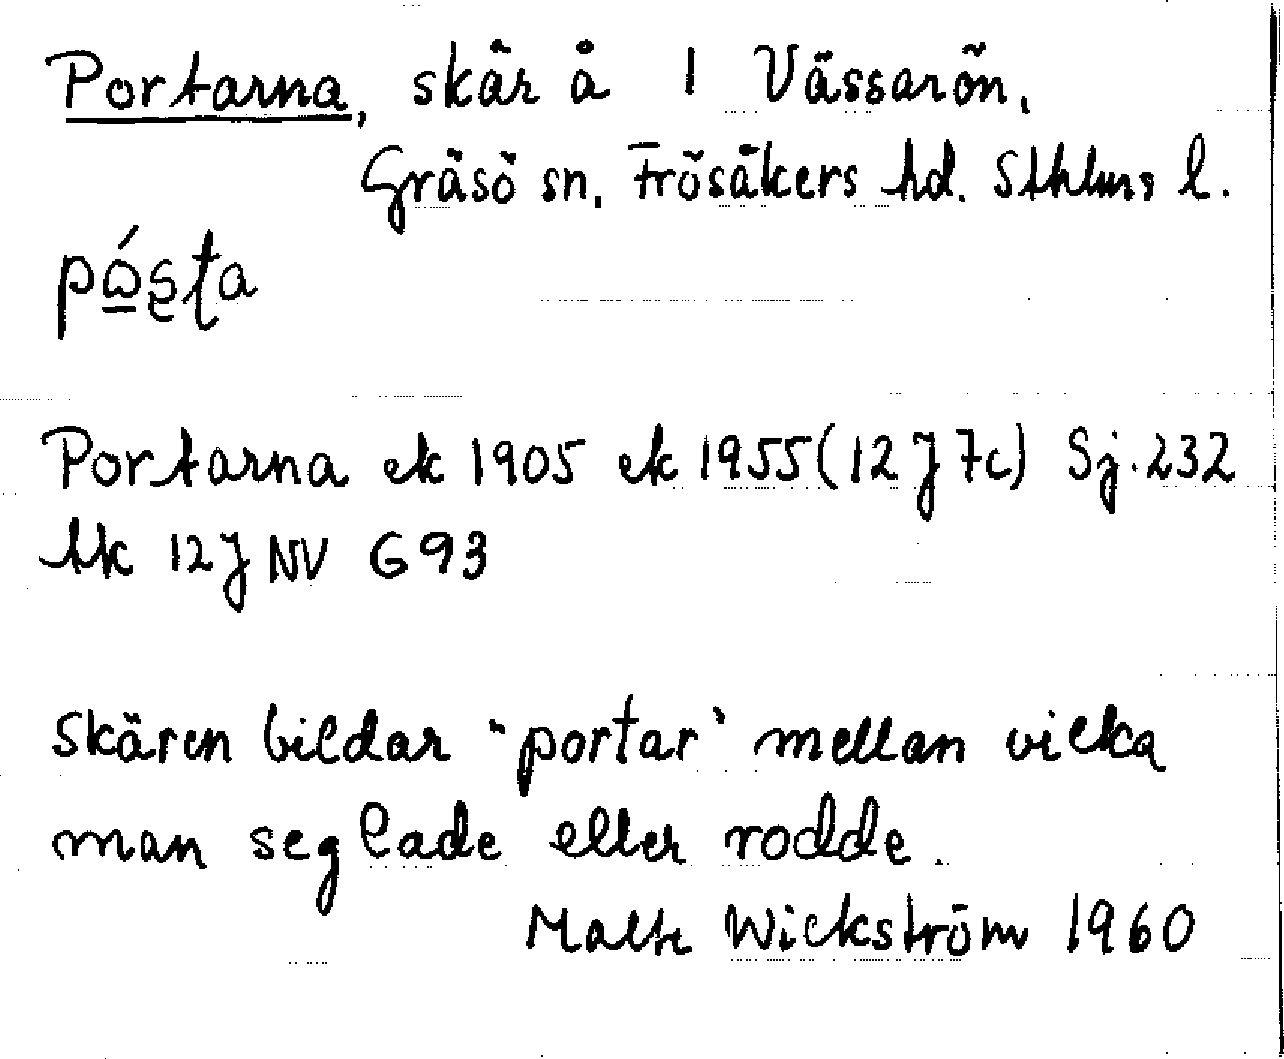 Portarna, skär å 1 Vässarön,
Gräsö sn, Frösåkers hd. Sthlms l.
Portarna ek 1905 ek 1955 (12 J 7c) Sj. 232
tk 12 J NV G 93
Skären bildar "portar" mellan vilka
man seglade eller rodde.
Malte Wickström 1960